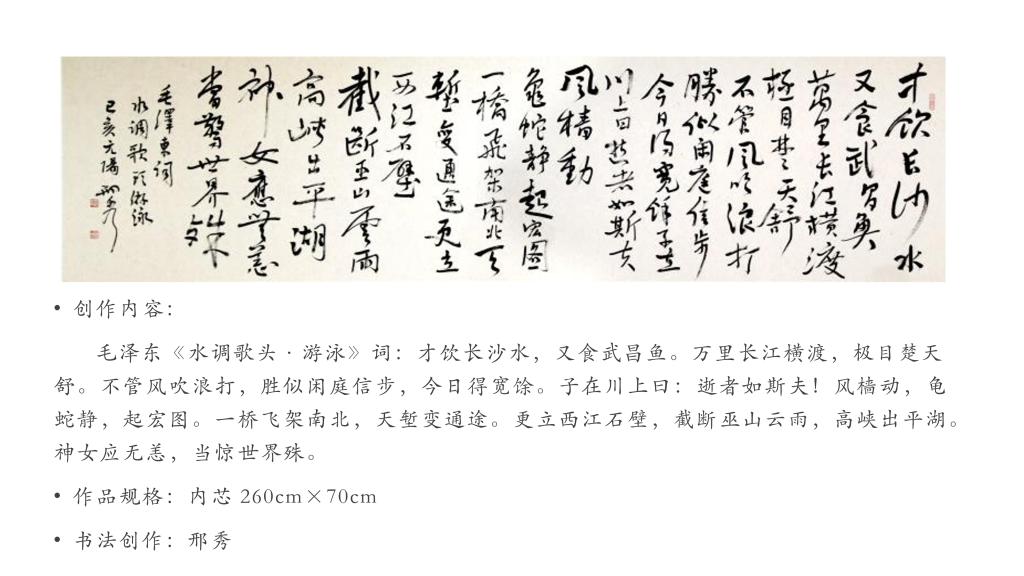 才饮长沙水
又食武昌魚
萬里长江横渡
極目楚天舒
不管風吹浪打
勝似闲庭信步
今日得寬餘子在
川上曰逝者如斯夫
風樯動
龜蛇静起宏图
一橋飛架南北天
塹变通途更立
西江石壁
截断巫山雲雨
高峡出平湖
神女應無恙
當驚世界殊
毛澤東词
水调歌头游泳
己亥元陽邢秀
• 创作内容：
毛泽东《水调歌头·游泳》词：才饮长沙水，又食武昌鱼。万里长江横渡，极目楚天
舒。不管风吹浪打，胜似闲庭信步，今日得宽馀。子在川上曰：逝者如斯夫！风樯动，龟
蛇静，起宏图。一桥飞架南北，天堑变通途。更立西江石壁，截断巫山云雨，高峡出平湖。
神女应无恙，当惊世界殊。
• 作品规格：内芯 260cm×70cm
• 书法创作：邢秀